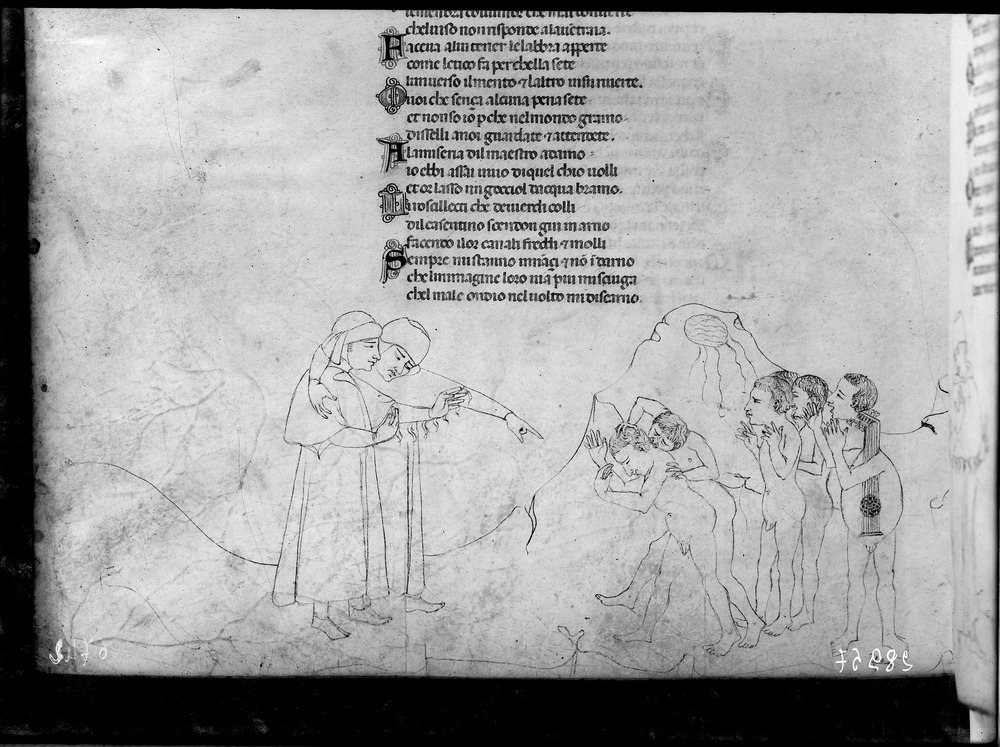 chelviso non risponde alaventraia.
Faceva alui tener lelabbra apperte
come letico fa perchella sete
lunverso ilmento ⁊ laltro insu riverte.
O voi che sença alcuna pena sete
et non so io pche nelmondo gramo
disselli anoi guardate ⁊ attendete.
Alamiseria dil maestro adamo
io ebbi assai vivo di quel chio volli
et or lasso un gocciol dacqua bramo.
che deiverdi colli
dil casentino scendon giu in arno
facendo ilor canali freddi ⁊ molli
Sempre mi stanno innaçi ⁊ nō īdarno
chellimmagine loro via piu masciuga
chel male ondio nel volto mi discarno.